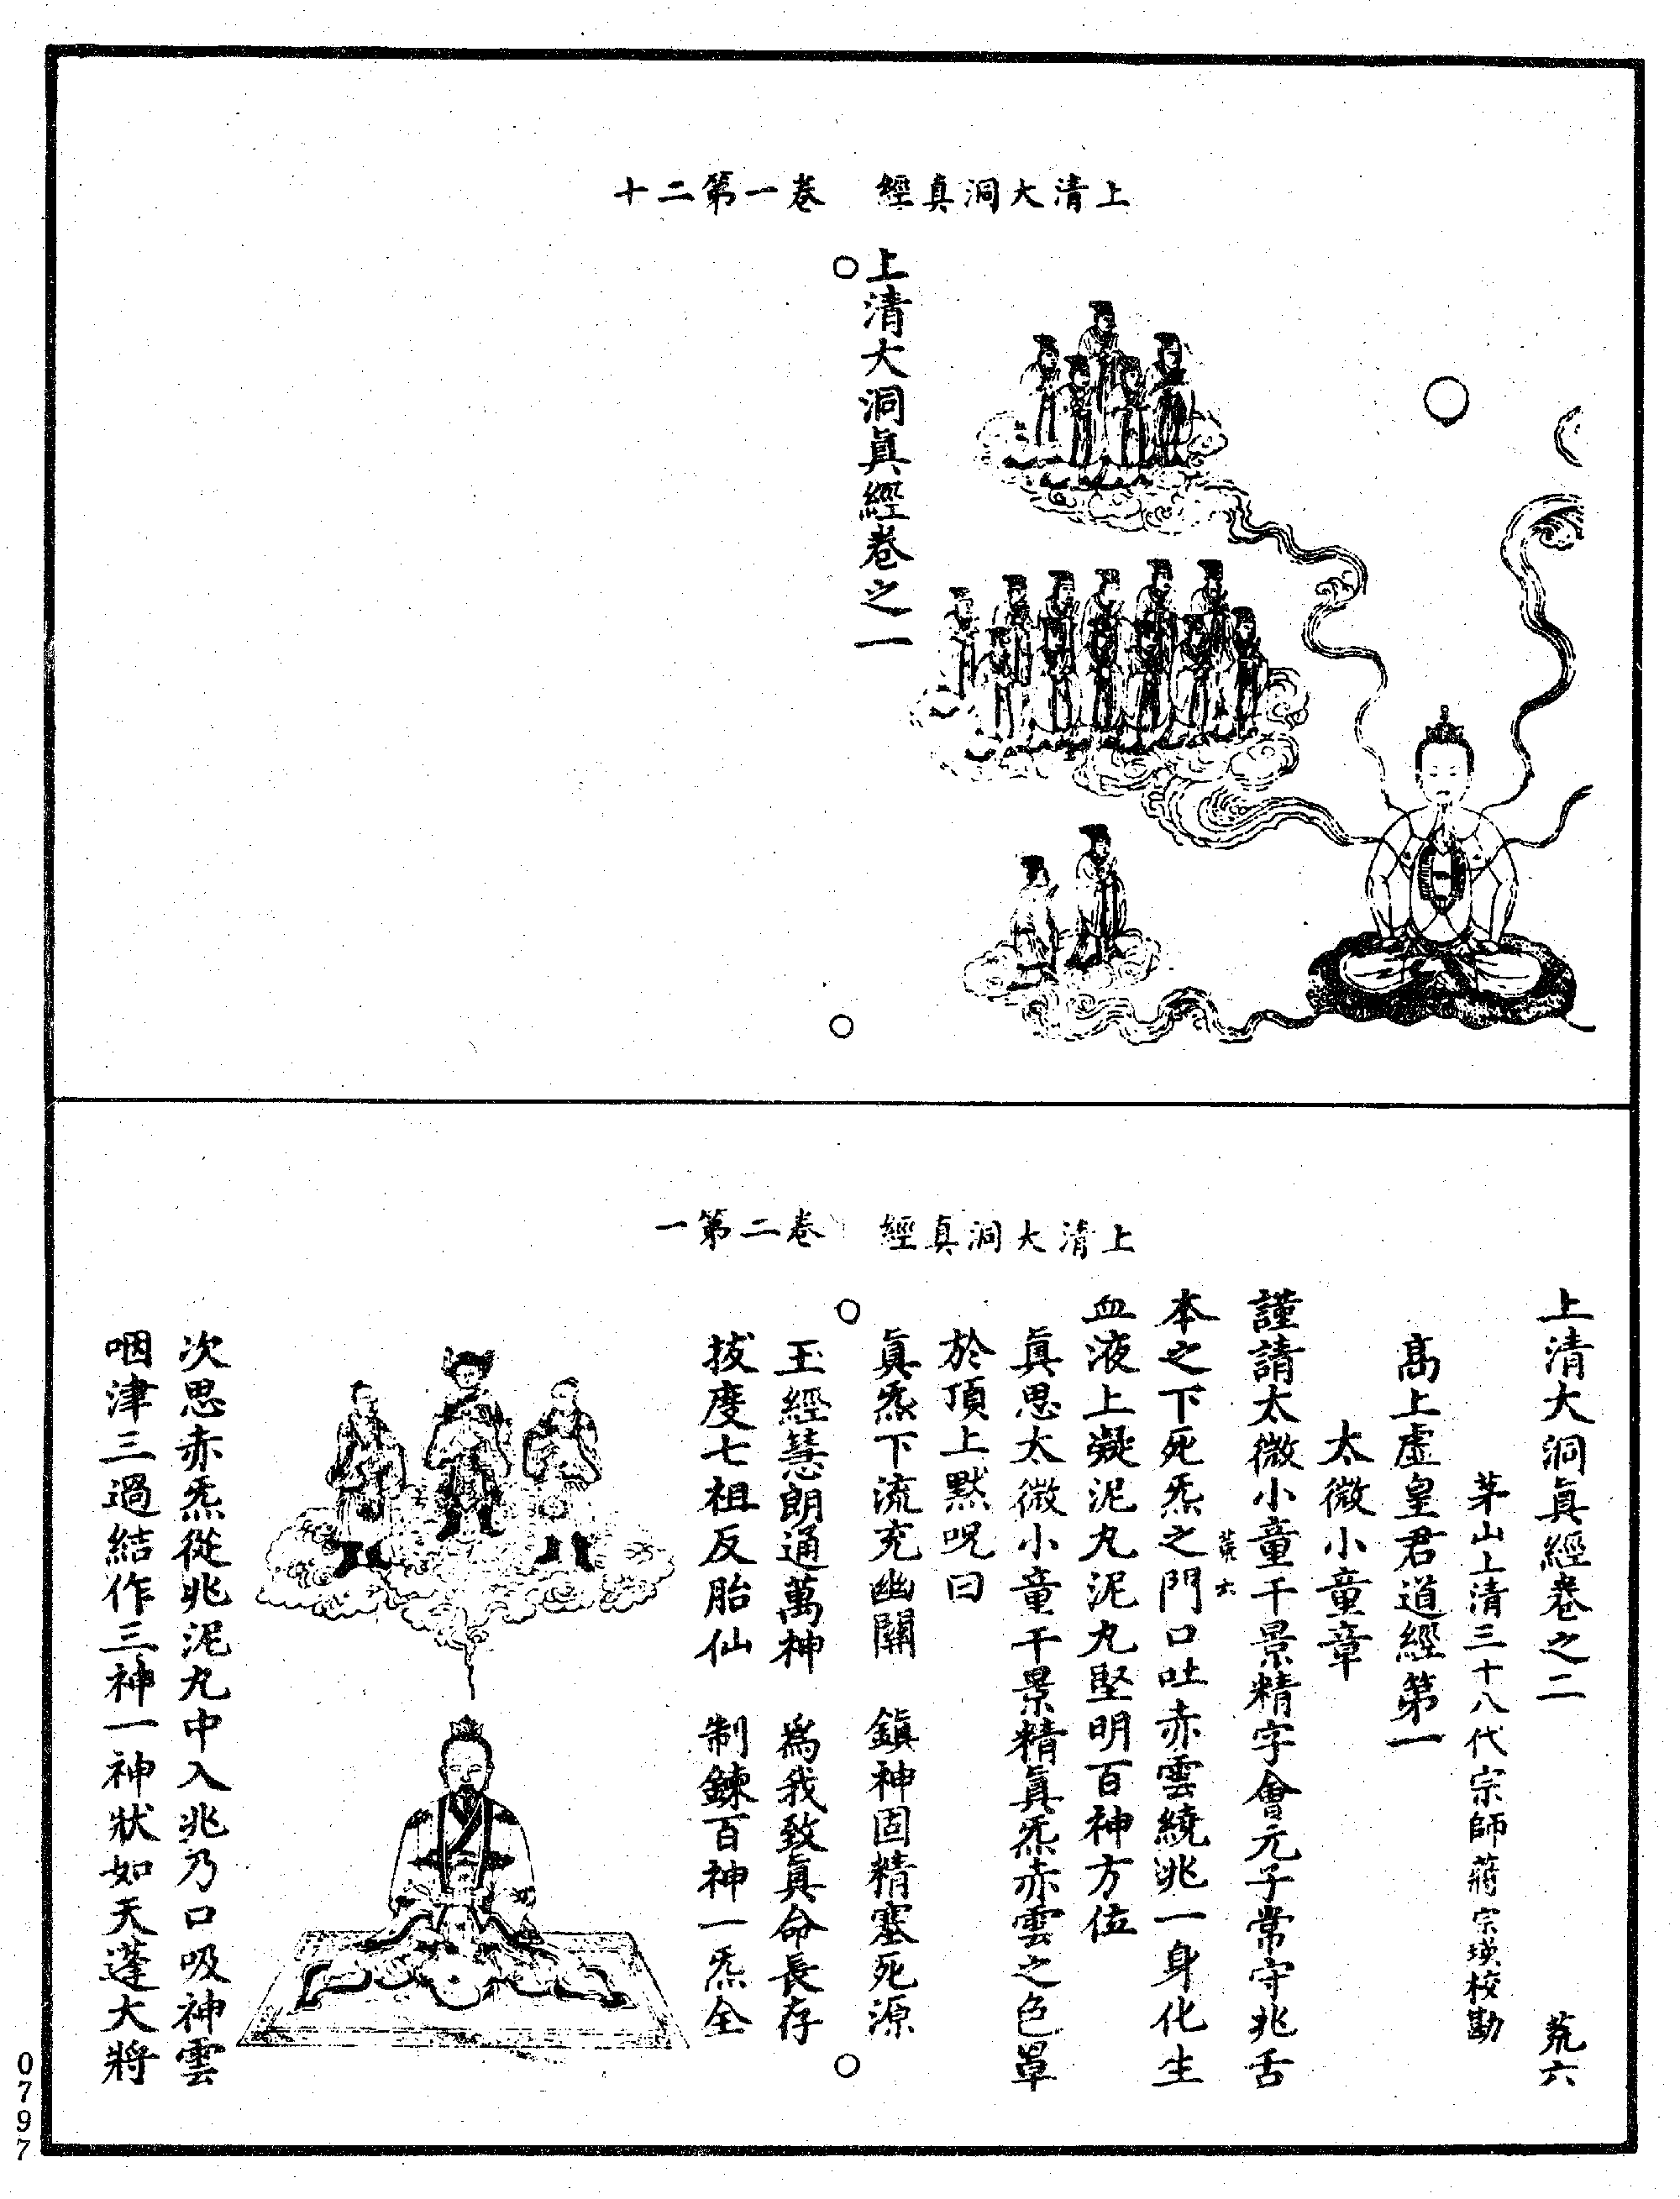 上清大洞真經　卷一第二十
上清大洞眞經卷之一
上清大洞真經　卷二第一
上清大洞眞經卷之二　荒六
茅山上清三十八代宗師蔣宗瑛校勘
高上虛皇君道經第一
太微小童章
謹請太微小童干景精字會元子常守兆舌
荒六
本之下死炁之門口吐赤雲繞兆一身化生
血液上凝泥丸泥丸堅明百神方位
眞思太微小童干景精眞炁赤雲之色罩
於頂上默呪曰
眞炁下流充幽關　鎮神固精塞死源
玉經慧朗通萬神　爲我致眞命長存
拔度七祖反胎仙　制鍊百神一炁全
次思赤炁從兆泥丸中入兆乃口吸神雲
咽津三過結作三神一神狀如天蓬大將
0797